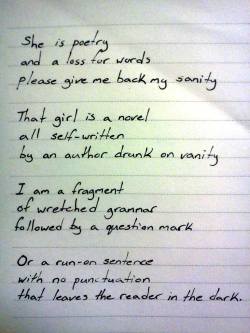 She is poetry
and a loss for words
please give me back my sanity
That girl is a novel
all self-written
by an author drunk on vanity
I am a fragment
of wretched grammar
followed by a question mark
Or a run-on sentence
with no punctuation
that leaves the reader in the dark.